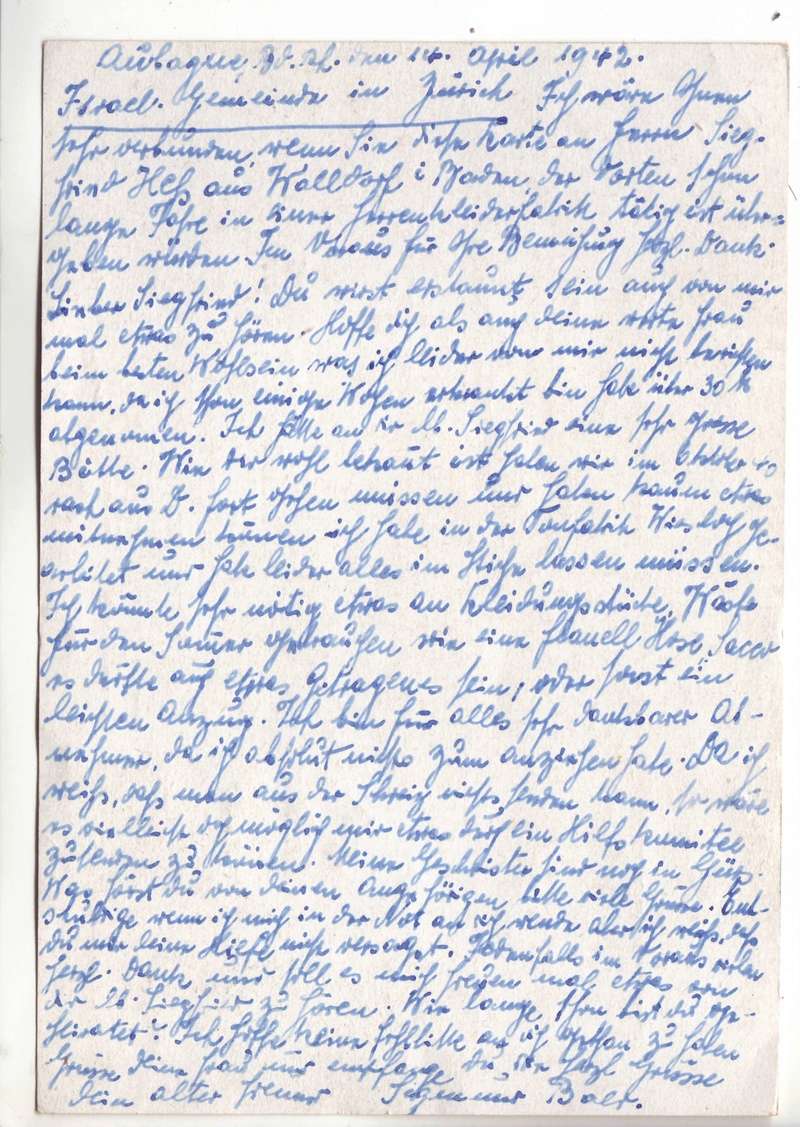 Aubagne, Bd. Rh. den 14. April 1942.
Israel. Gemeinde in Zürich Ich wäre Ihnen
sehr verbunden, wenn Sie diese Karte an Herrn Sieg-
fried Heß aus Walldorf i Baden, der Dorten schon
lange Jahre in einer Herrenkleiderfabrik tätig ist über-
geben würden. Im Voraus für Ihre Bemühung herzl. Dank.
Lieber Siegfried! Du wirst erstaunt sein auch von mir
mal etwas zu hören. Hoffe dich als auch deine werte Frau
beim besten Wohlsein was ich leider von mir nicht berichten
kann, da ich schon einige Wochen erkrankt bin habe über 30 K
abgenomen. Ich hätte an dir lb. Siegfried eine sehr grosse
Bitte. Wie dir wohl bekannt ist haben wir im Oktober 40
rasch aus D. fort gehen müssen und haben kaum etwas
mitnehmen können ich habe in der Tonfabrik Wiesloch ge-
arbeitet und habe leider alles im Stiche lassen müssen.
Ich könnte sehr nötig etwas an Kleidungsstücke, Wäsche
für den Somer gebrauchen wie eine Flanell Hose, Sacco
es dürfte auch etwas Getragenes sein, oder sonst ein
leichten Anzug. Ich bin für alles sehr dankbarer Ab-
nehmer, da ich absolut nichts zum anziehen habe. Da ich
weiß, daß man aus der Schweiz nichts senden kann, so wäre
es vielleicht doch möglich mir etwas durch ein Hilfskomitee
zusenden zu können. Meine Geschwister sind noch in Gürs.
Was hörst du von deinen Angehörigen, bitte viele Grüsse. Ent-
schuldige wenn ich mich in der Not an dich wende aber ich weiß, daß
du mir deine Hilfe nicht versagst. Jedenfalls im Voraus vielen
herzl. Dank und soll es mich freuen mal etwas von
dir lb. Siegfried zu hören. Wie lange schon bist du ge-
heiratet? Ich hoffe keine Fehlbitte an dich gethan zu haben
Grüsse deine Frau und empfange du, die herzl Grüsse
dein alter Freund Sigmund Baer.